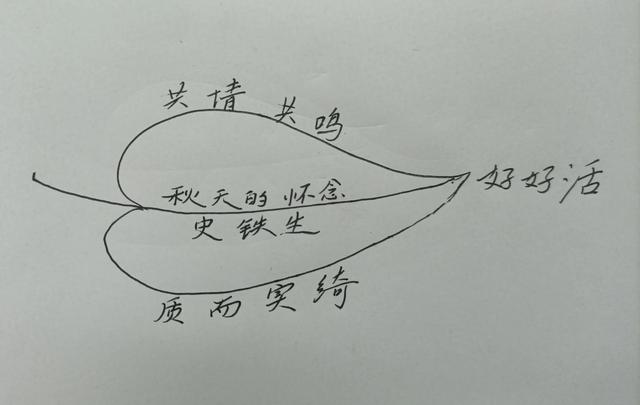 共情 共鸣
秋天的怀念
史铁生
好好活
质而实绮